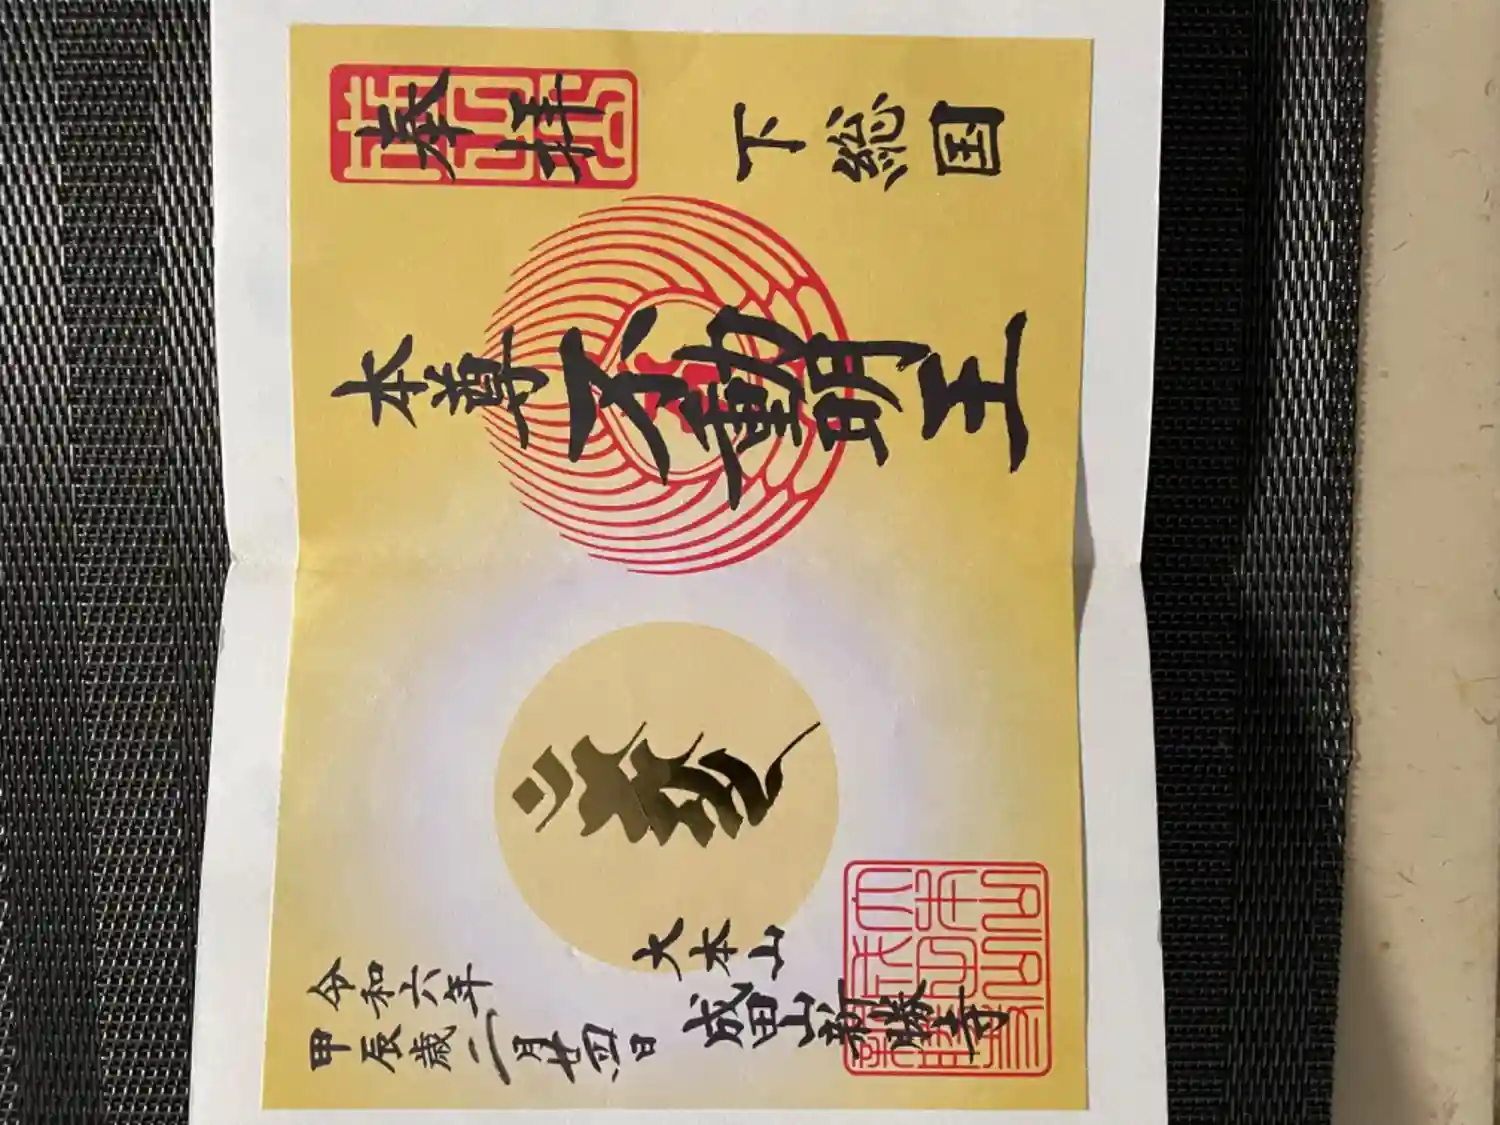 奉拝
下総国
本尊不動明王
令和六年
甲辰歳二月廿四日
大本山
成田山新勝寺